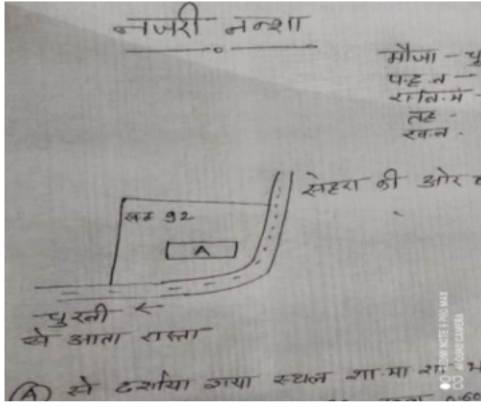 नजरी नक्शा
मौजा -
प.ह.न -
रा.नि.मं -
तह -
ख.न.
सेहरा की ओर
खन 92
A
चुरनी ←
से आता रास्ता
(A) से दर्शाया गया स्थल शा.मा
REDMI NOTE 9 PRO MAX
AI QUAD CAMERA